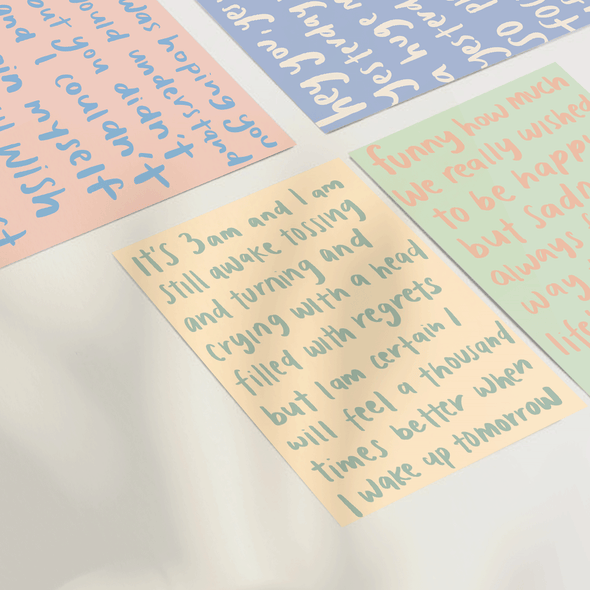 was hoping you
would understand
but you didn't
and I couldn't
myself
wish
hey you, yes
yesterday
a huge
yesterday
so
funny how much
we really wished
to be happy
but
always
way
life
It's 3am and I am
still awake tossing
and turning and
crying with a head
filled with regrets
but I am certain I
will feel a thousand
times better when
I wake up tomorrow